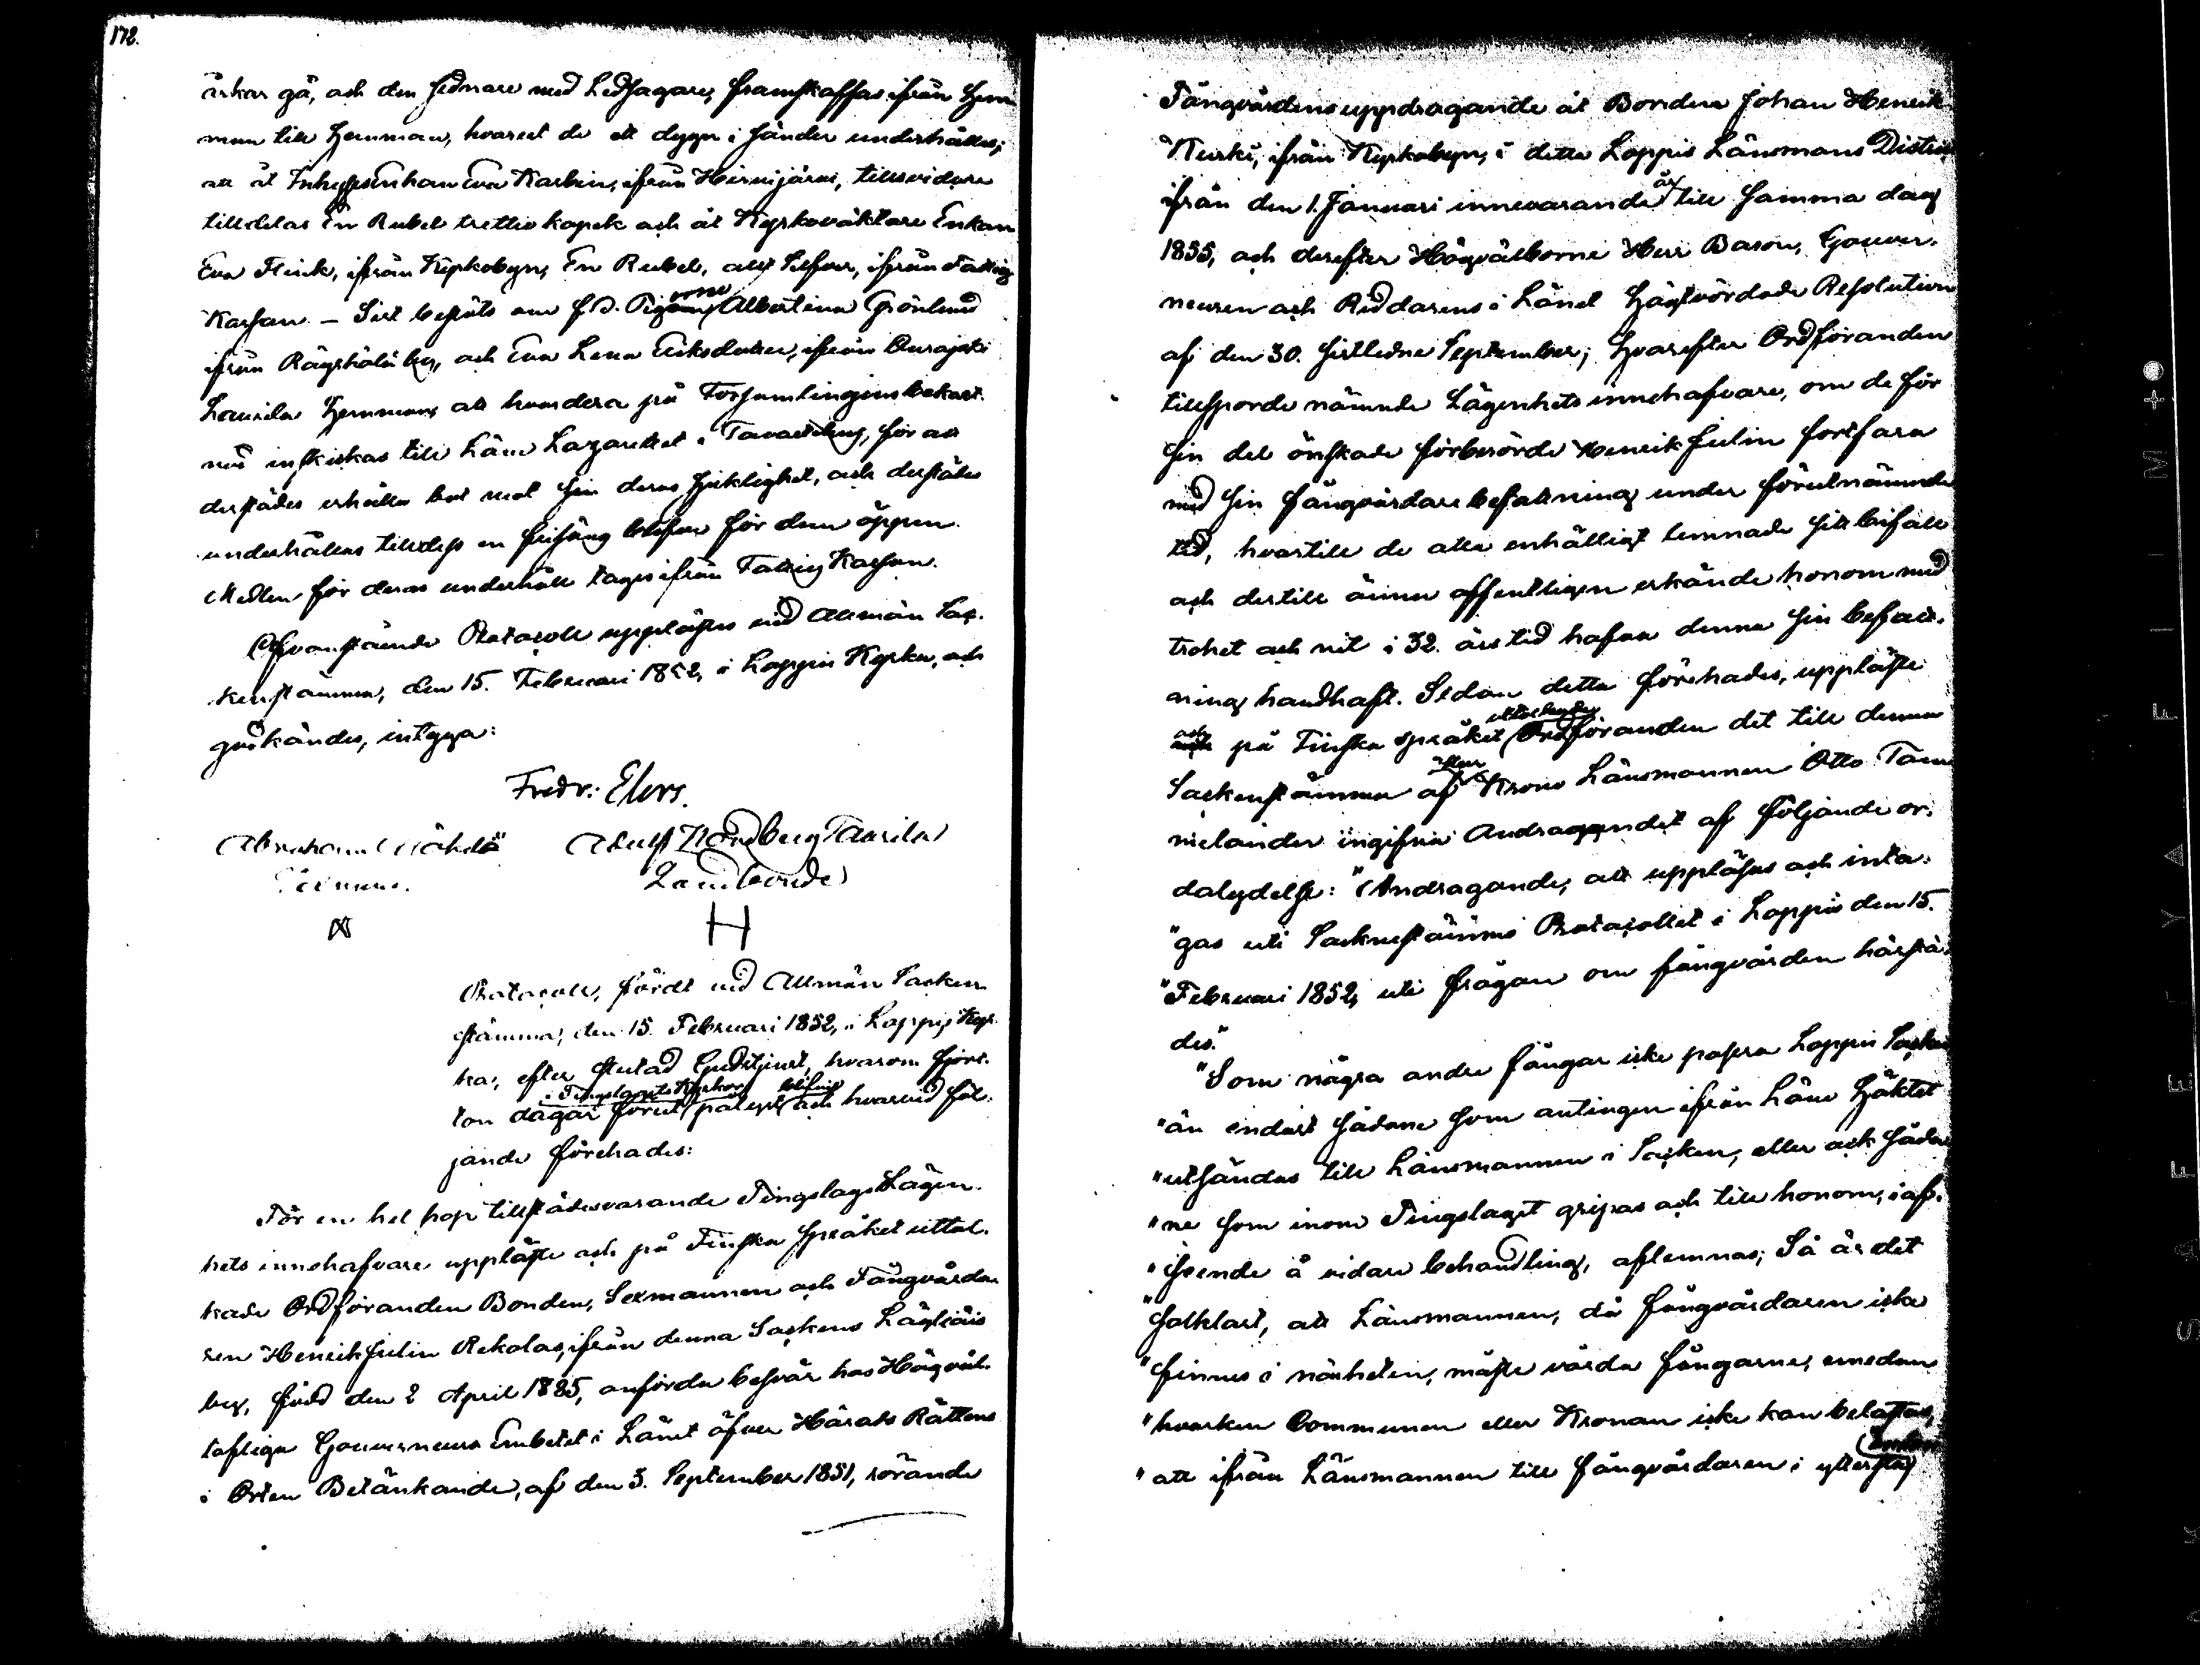 172.
orkar gå, och den sednare med Ledsagare, framskaffas ifrån Hem-
man till Hemman, hvarest de ett dygn i sänder underhålles;
att åt Inhysesenkan Eva Karbin, ifrån Hirvijärvi, tillsvidare
tilldelas En Rubel trettio kopek och åt Kyrkoväktare Enkan
Eva Flink, ifrån Kyrkobyn, En Rubel, allt Silfver, ifrån Fattig
Kassan. – Sist beslöts om f.d. Pigorne Albertina Grönlund
ifrån Räyskälä by, och Eva Lena Eriksdotter, ifrån Ourajoki
Laurila Hemman, att hvardera på Församlingens bekost-
nad inskickas till Läns Lazarettet i Tavastehus, för att
derstädes erhålla bot mot sin deras sjuklighet, och derstädes
underhållas tilldess en frisäng blifver för dem öppen.
Medlen för deras underhåll tages ifrån Fattig Kassan.
Ofvanstående Protocoll upplästes vid Allmän Soc-
kenstämma, den 15. Februari 1852, i Loppis Kyrka, och
godkändes, intyga:
Fredr: Elers.
Abraham Mähölä Adolf Nordberg Taurila
Landbonde
H
Protocoll, fördt vid Allmän Socken
stämma, den 15. Februari 1852, i Loppis Kyr-
ka, efter slutad Gudstjenst, hvarom fjor-
i Tingslagets Kyrkor blifvit
ton dagar förut pålyst och hvarvid föl-
jande förehades:
För en hel hop tillstädesvarande Tingslags Lägen-
hets innehafvare uppläste och på Finska Språket uttol-
kade Ordföranden Bonden, Sexmannen och Fångvårda-
ren Henrik Juslin Rekolas, ifrån denna Sockens Läyliäis
by, född den 2 April 1825, anförda besvär hos Högväl-
loflige Gouverneurs Embetet i Länet öfver Härads Rättens
i Orten Betänkande, af den 3. September 1851, rörande
Fångvårdens uppdragande åt Bonden Johan Henrik
Kurki, ifrån Kyrkobyn, i detta Loppis Länsmans District
ifrån den 1. Januari innevarande år till samma dag
1855, och derefter Högvälborne Herr Baron, Gouver-
neuren och Riddarens i Länet högtvördade Resolution
af den 30. sistledne September; hvarefter Ordföranden
tillsporde nämnde Lägenhets innehafvare, om de för
sin del önskade förberörde Henrik Juslin fortfara
med sin fångvårdare befattning under förutnämnde
tid, hvartill de alla enhälligt lemnade sitt bifall
och dertill ännu offentligen erkände honom med
trohet och nit i 32. års tid hafva denna sin befatt-
ning handhaft. Sedan detta förehades, uppläste
och på Finska språket uttolkade Ordföranden det till denna
Sockenstämma af Herr Krono Länsmannen Otto Tam-
melander ingifna Andragandet af följande or-
dalydelse: "Andragande, att uppläsas och inta-
"gas uti Sockenstämmo Protocollet i Loppis den 15.
"Februari 1852, uti frågan om fångvården härstä-
des."
"Som några andra fångar icke passera Loppis Socken
"än endast sådane som antingen ifrån Läns Häktet
"utsändas till Länsmannen i Socken, eller ock såda-
"ne som inom Tingslaget gripas och till honom, i af-
"seende å vidare behandling, aflemnas; Så är det
"solklart, att Länsmannen, då fångvårdaren icke
"finnes i närheten, måste vårda fångarne, emedan
"hvarken Communen eller Kronan icke kan belastas,
"att ifrån Länsmannen till fångvårdaren i yttersta